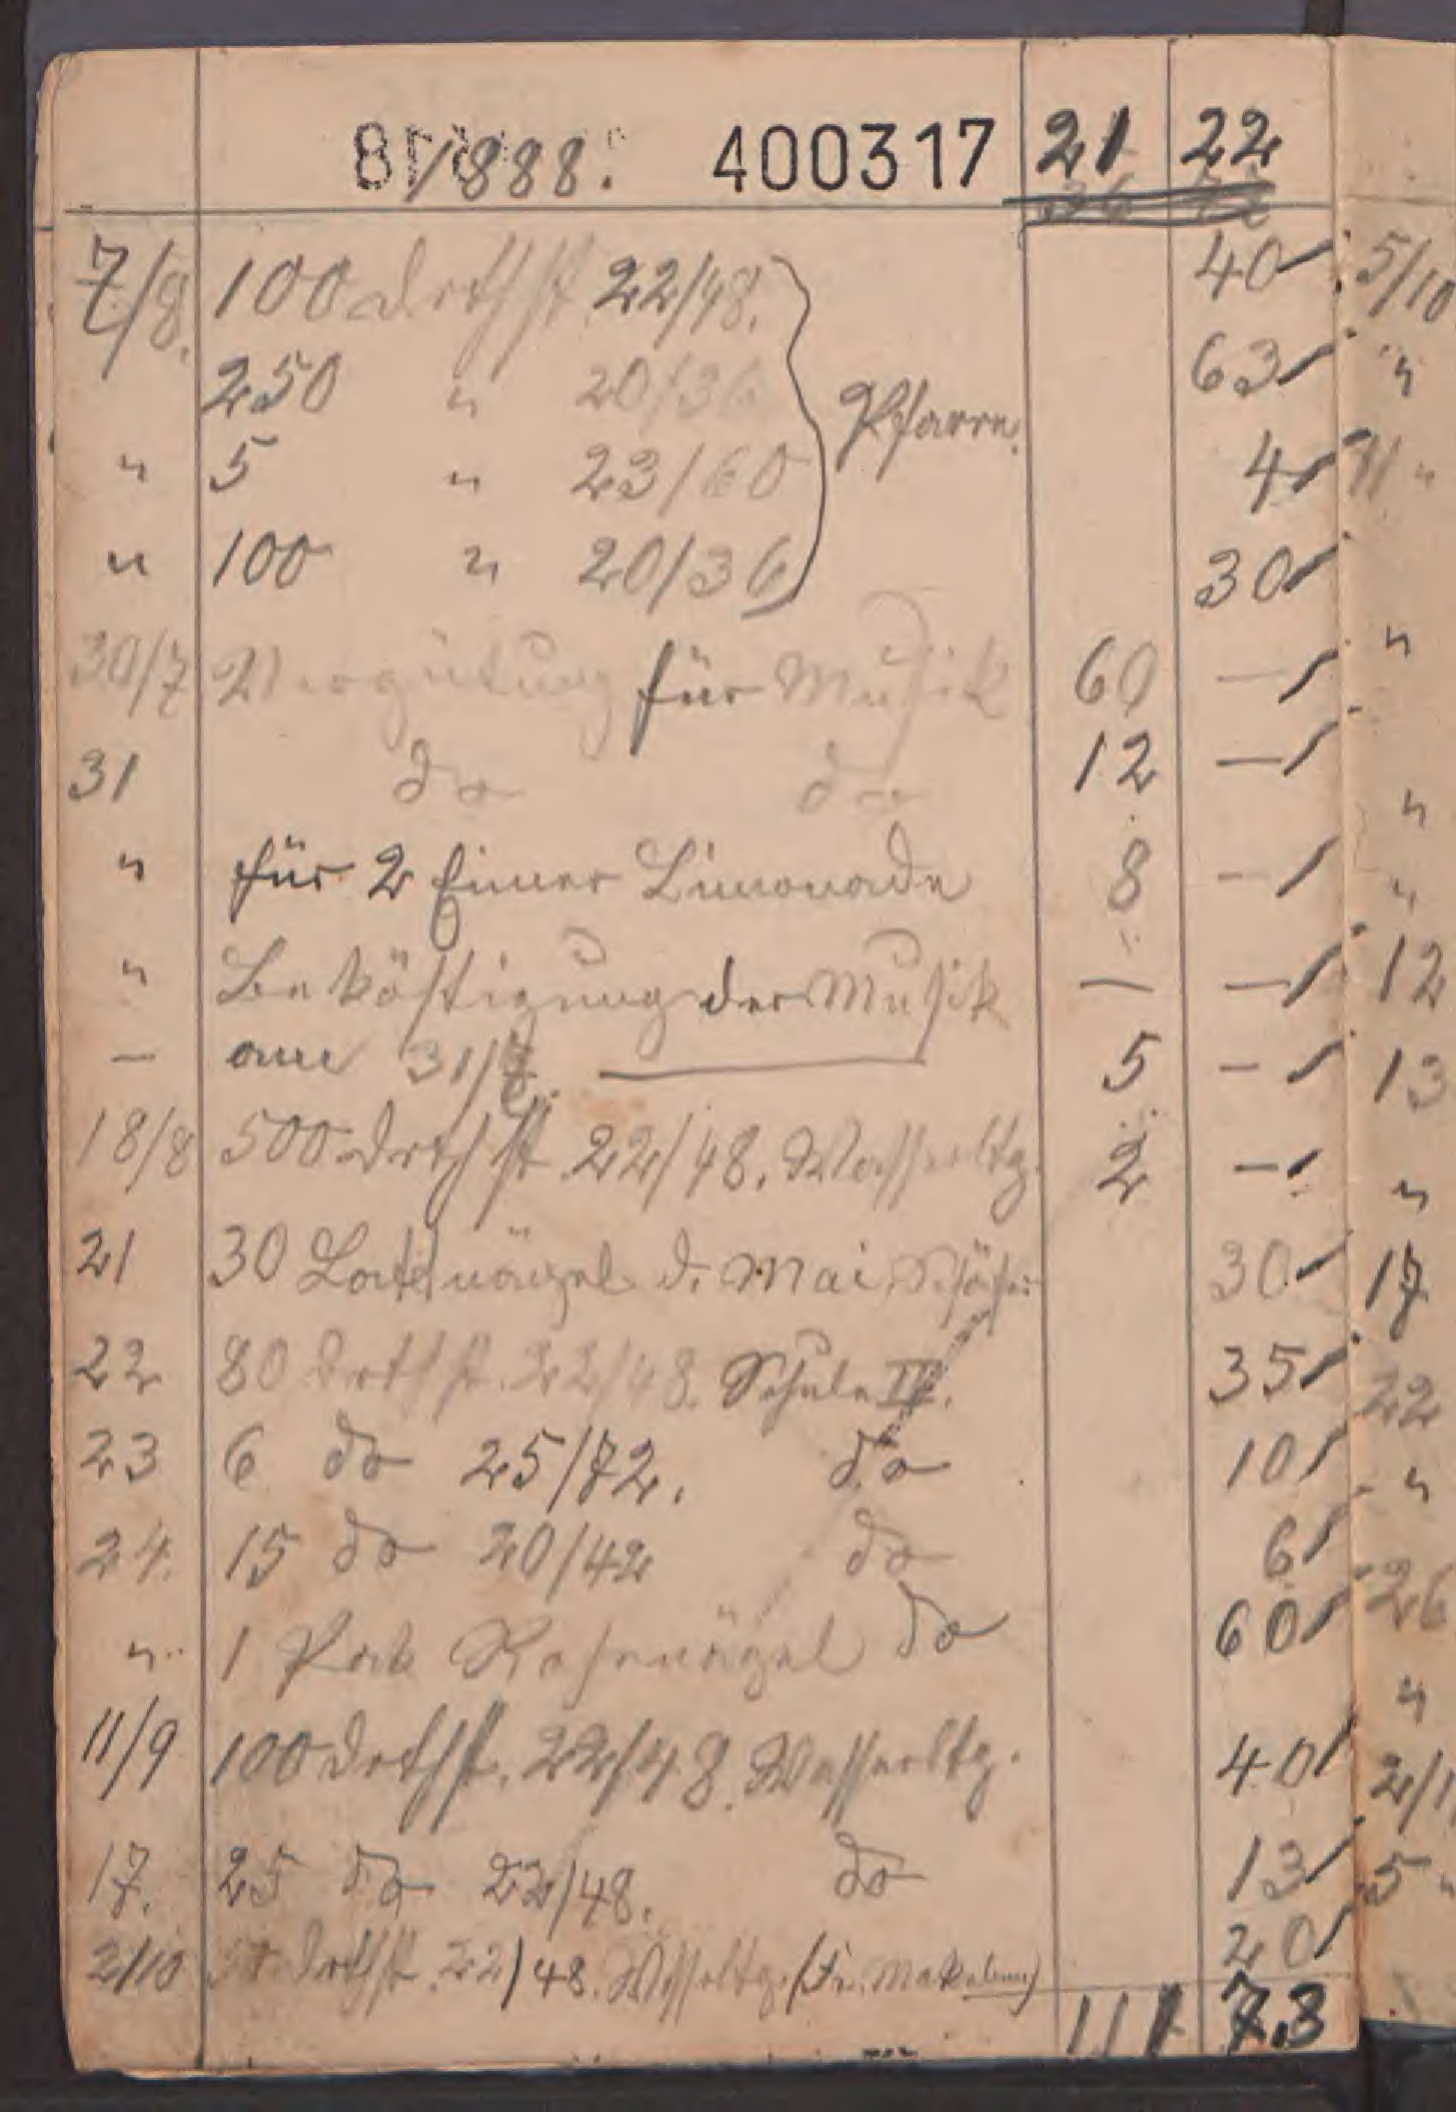 1888. 400317 21 22
7/8. 100 Drthst 22/48. 40
250 " 20/36 63
" 5 " 23/60 Pfarre. 4
" 100 " 20/36 30
30/7 Vergütung für Musik 60 —
31 do do 12 —
" für 2 Eimer Limonade 8 —
" Beköstigung der Musik — —
— am 31/7. 5 —
18/8 500 Drthst 22/48. Wasserltg. 2 —
21 30 Lattnägel d. Mai 30
22 80 Drthst. 22/48. Schule IV. 35
23 6 do 25/72. do 10
24. 15 do 20/42 do 6
" 1 Pak Rohrnägel do 60
11/9 100 Drthst. 22/48. Wasserltg. 40
17. 25 do 22/48. do 13
2/10 50 Drthst. 22/48. Wasserltg. (Fr. 20
111 73
5/10
"
11 "
"
"
"
12
13
"
17
22
"
26
"
5 "